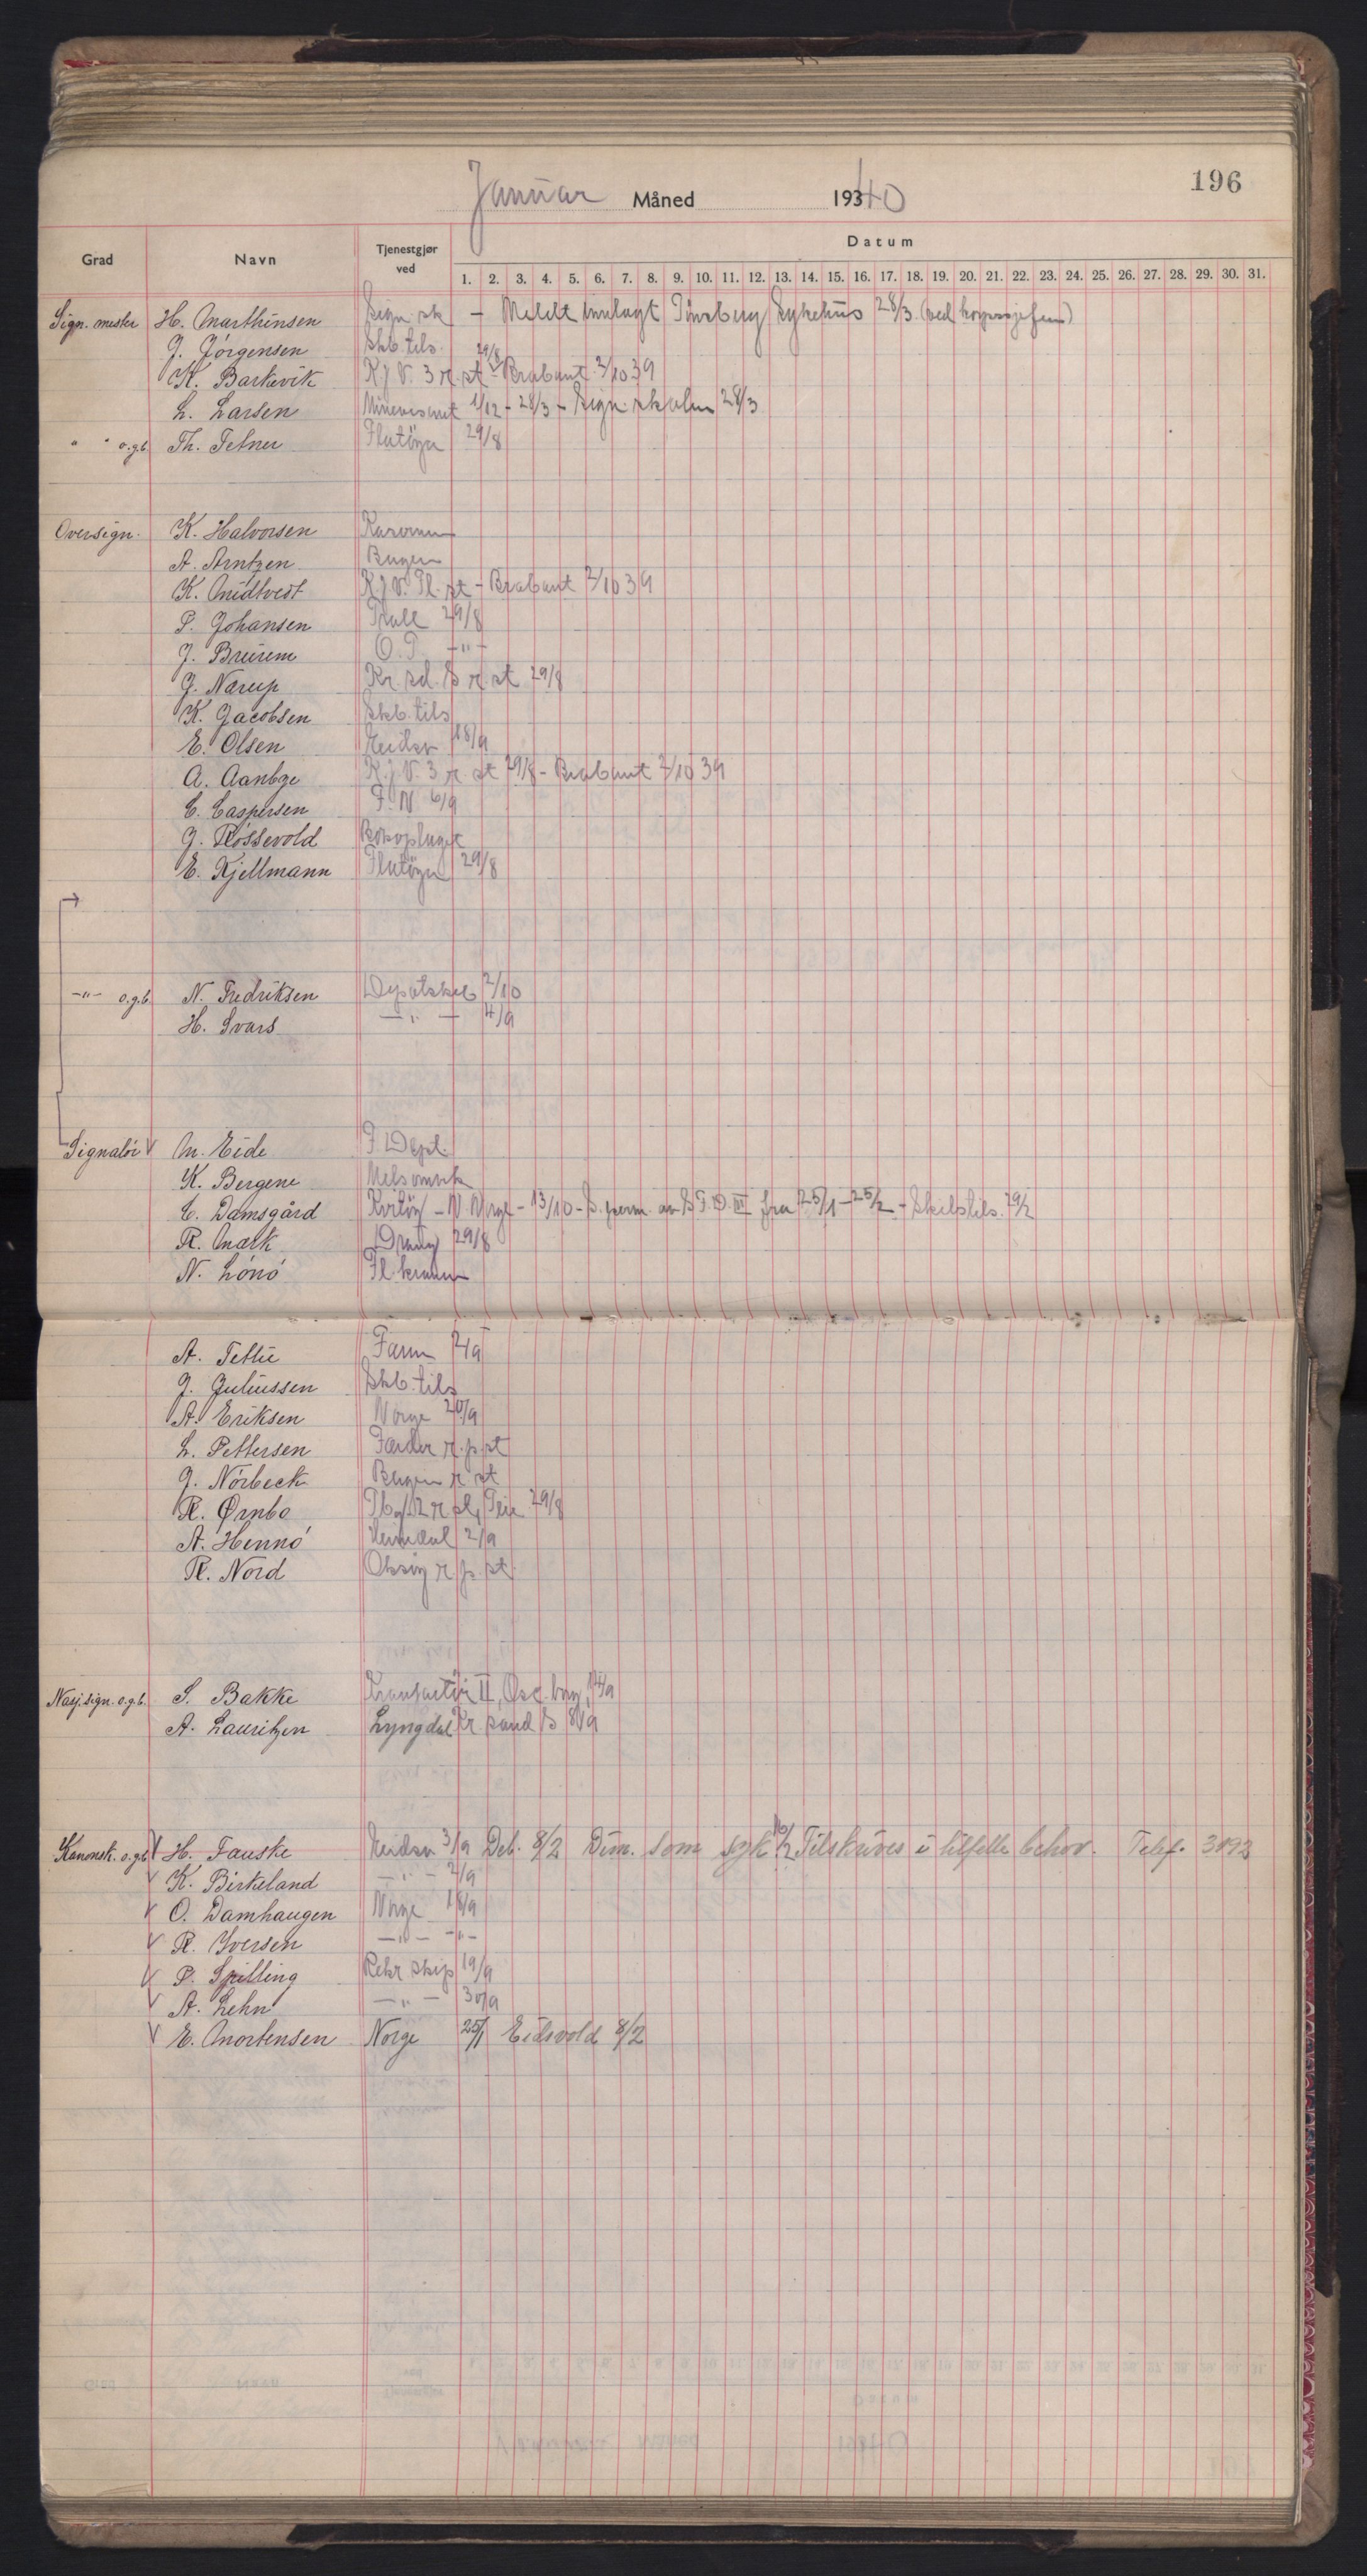 196
Januar Måned 1940
Grad Navn Tjenestgjør ved Datum
1. 2. 3. 4. 5. 6. 7. 8. 9. 10. 11. 12. 13. 14. 15. 16. 17. 18. 19. 20. 21. 22. 23. 24. 25. 26. 27. 28. 29. 30. 31.
Sign. mester H. Marthinsen Sign. sk - Meldt innlagt Tönsberg Sykehus 28/3 (ved korpssjefen)
J. Jörgensen Skb. tils.
K. Barkevik K.J.V. 3 r. st 29/8 - Brabant 2/10 39
L. Larsen Minevesenet 1/12 - 28/3 - Sign. skolen 28/3
" " o.g.b. Th. Tefner Flatöya 29/8
Oversign. K. Halvorsen
A. Arntzen
K. Midtvest K.J.V. Fl. st - Brabant 2/10 39
P. Johansen 29/8
J. Bruirem O.T. -"-
G. Nærup Kr. sd. S r st 29/8
K. Jacobsen Skb. tils
E. Olsen Eidsv 18/9
A. Aanbge K.J.V. 3 r. st 29/8 - Brabant 2/10 39
C. Caspersen F. N 6/9
G. Rössevold
E. Kjellmann Flatöya 29/8
-"- o.g.b. N. Fredriksen Depotskib 2/10
H. Svars -"- 4/9
Signalör √ M. Eide F. Dept.
K. Bergene Melsomvik
C. Damsgård Kviöy - N. Norge - 13/10 - S. perm. av S.F.D. III fra 25/1 - 25/2 - Skibstils. 29/2
R. Mørk Draug 29/8
N. Lönö
A. Tettie Farm 2/9
J. Juliussen Skb. tils
A. Eriksen Norge 20/9
L. Pettersen Færder r. p. st
J. Nörbeck r st
R. Ørnbo 29/8
A. Hennö Heimdal 2/9
R. Nord Oksöy r. p. st.
Nasj. sign. o.g.b. S. Bakke II, Osc. borg, 14/9
A. Lauritzen Lyngdal Kr. sand S 8/9
Kanonk. o.g.b. √ H. Fauske Eidsv 3/9 Deb. 8/2 Dim. som syk Tilskrives i tilfelle behov. Telef. 3892
√ K. Birkeland -"- 2/9
√ O. Damhaugen Norge 18/9
√ R. Iversen -"- -"-
√ P. Spilling Rekr. skip 19/9
√ A. Lehn -"- 30/9
√ E. Mortensen Norge 25/1 Eidsvold 8/2